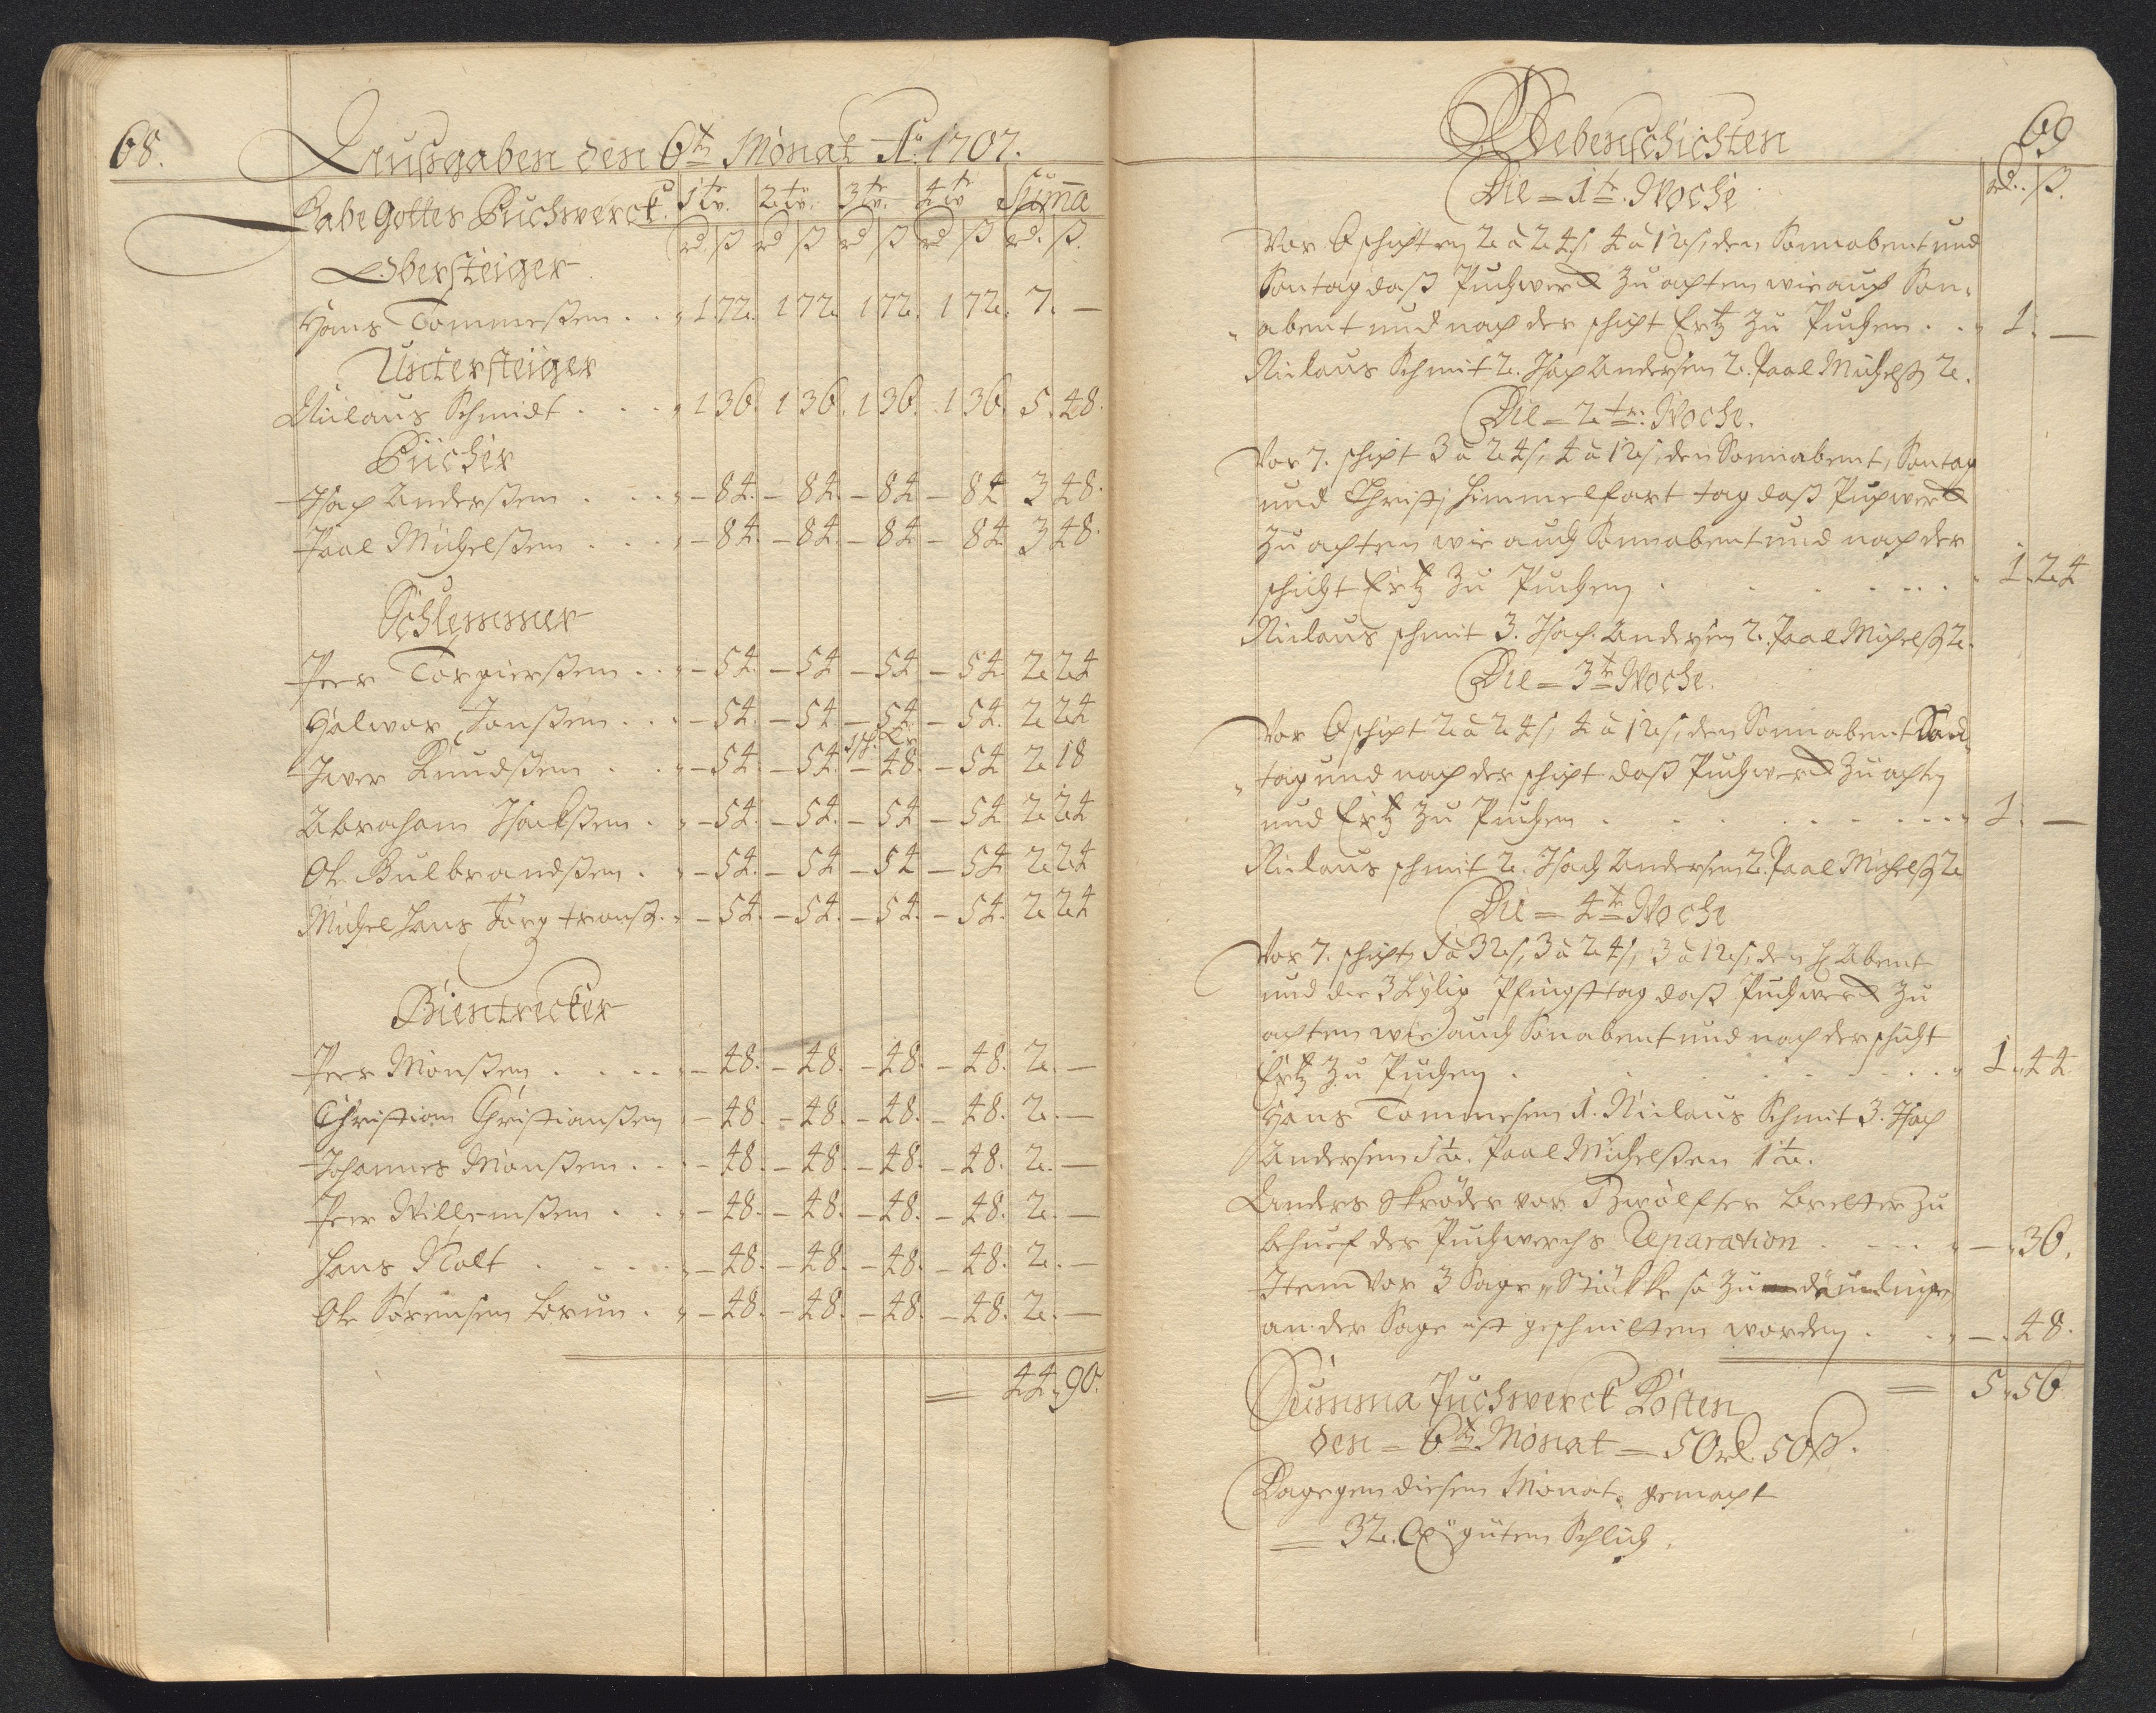 68.
Ausgaben den 6ten Monat Ao. 1707.
Gabe Gottes Puchwerck. 1te w. 2te w. 3te w. 4te w Suma
rd ß rd ß rd ß rd ß rd. ß.
Obersteiger
Hans Tommeßen . . 1 72. 1 72. 1 72. 1 72. 7. —
Untersteiger
Niclaus Schmidt . . . 1 36. 1 36. 1 36. 1 36. 5. 48.
Pücher
Isach Anderßen . . . — 84. — 84. — 84 — 84 3 48.
Paal Michelßen . . . — 84. — 84. — 84 — 84 3 48.
Schlemmer
Peer Torgierßen . . — 54. — 54 — 54 — 54. 2 24
Halwor Janßen . . . — 54. — 54 — 54 — 54. 2 24
1 sch. Kr
Iver Knudßen . . — 54. — 54. — 48. — 54 2 18
Abraham Isackßen . — 54. — 54. — 54 — 54 2 24
Ole Gulbrandßen . — 54. — 54 — 54 — 54 2 24
Michel Hans Jörg tronß. — 54. — 54. — 54. — 54. 2 24
Bientrecker
Peer Monßen . . . . — 48. — 48. — 48. — 48. 2. —
Christian Christianßen — 48. — 48. — 48. — 48. 2. —
Johannes Monßen . . — 48. — 48. — 48. — 48. 2. —
Peer Willemßen . . — 48. — 48. — 48. — 48. 2. —
Hans Nolt . . . . — 48. — 48. — 48. — 48. 2. —
Ole Sörensen Brun . — 48. — 48. — 48. — 48. 2. —
= 44 „ 90.
69
Nebenschichten
rd. ß.
Die = 1te. Woche
Vor 6 schichten 2 à 24 s, 4 à 12 s, den Sonnabent und
Sontag daß Puchwerck zu achten wie auch Son-
abent und nach der schicht Ertz zu Puchen . . 1. —
Niclaus Schmit 2. Isach Andersen 2. Paal Michelß 2.
Die = 2te. Woche.
Vor 7. schicht 3 à 24 s, 4 à 12 s, den Sonnabent, Sontag
und Christj Himmelfart tag daß Puchwerck
zu achten wie auch Sonnabent und nach der
schicht Ertz zu Puchen . . . . . . 1. 24
Niclaus schmit 3. Isach Andersen 2. Paal Michelß 2.
Die = 3te Woche.
Vor 6 schicht 2 à 24 s, 4 à 12 s, den Sonnabent Son
tag und nach der schicht daß Puchwerck zu achten
und Ertz zu Puchen . . . . . . . . 1. —
Niclaus schmit 2. Isach Andersen 2. Paal Michelß 2
Die = 4te Woche
Vor 7. schicht 1 à 32 s, 3 à 24 s, 3 à 12 s, den H. Abent
und die 3 Heylig Pfingsttag daß Puchwerck zu
achten wie auch Sonabent und nach der schicht
Ertz zu Puchen . . . . . . . . 1 „ 44
Hans Tommesen 1. Niclaus Schmit 3. Isach
Andersen 1½. Paal Michelßen 1½.
Anders Skröder vor Zwölfter Bretter zu
behuef der Puchwerchs Reparation . . . . — „ 36.
Item vor 3 Sage „ Stökke so zu däumlinge
an der Sage ist geschnitten worden . . . — „ 48.
= 5 „ 56
Summa Puchwerck Kosten
den = 6ten Monat = 50 rd. 50 ß.
Dagegen diesen Monat gemacht
= 32. guten Schlich.